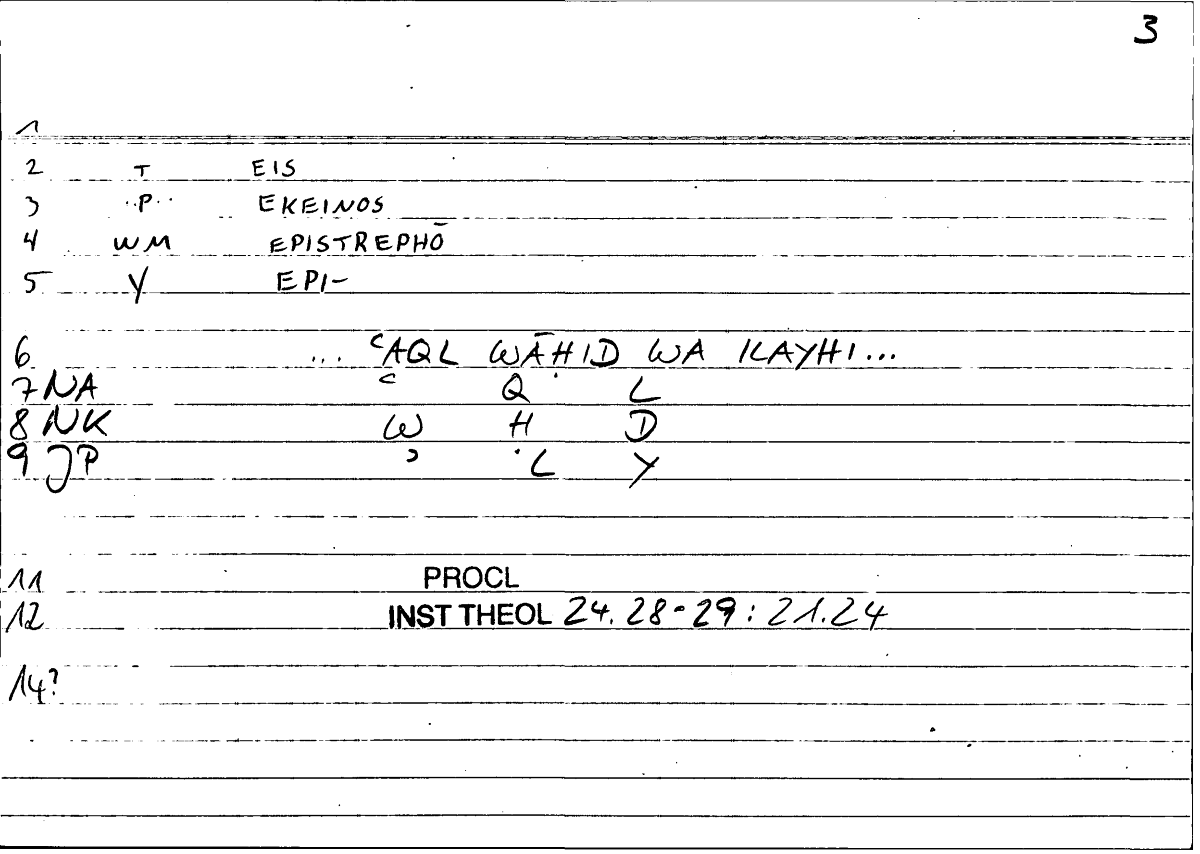 3
1
2 T EIS
3 P EKEINOS
4 WM EPISTREPHŌ
5 Y EPI-
6 ... ʿAQL WĀḤID WA ILAYHI...
7 NA ʿ Q L
8 NK W Ḥ D
9 JP ʾ L Y
11 PROCL
12 INST THEOL 24.28-29:21.24
14?